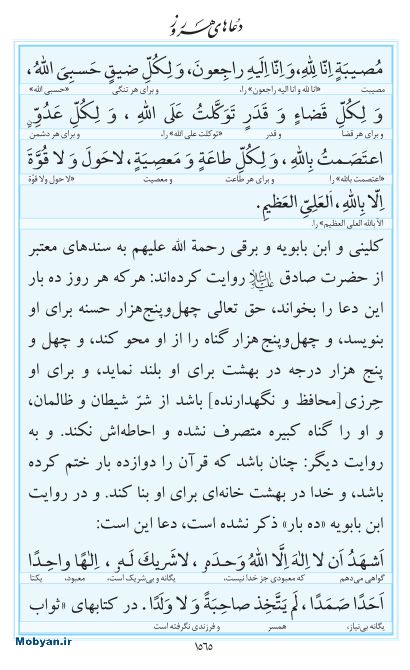 دعاهای هر روز
مُصیبَةٍ اِنّا لِلّٰهِ، وَ اِنّا اِلَیهِ راجِعونَ، وَ لِکُلِّ ضیقٍ حَسبِیَ اللهُ،
مصیبت «انا لله و انا الیه راجعون» را، و برای هر تنگی «حسبی الله»
وَ لِکُلِّ قَضاءٍ وَ قَدَرٍ تَوَکَّلتُ عَلَی اللهِ ، وَ لِکُلِّ عَدُوٍّ
و برای هر قضا و قدر «توکلت علی الله» را، و برای هر دشمن
اعتَصَمتُ بِاللهِ، وَ لِکُلِّ طاعَةٍ وَ مَعصِیَةٍ، لاحَولَ وَ لا قُوَّةَ
«اعتصمت بالله» را و برای هر طاعت و معصیت «لا حول ولا قوّة
اِلّا بِاللهِ، اَلعَلِیِّ العَظیمِ.
الاّ بالله العلی العظیم» را.
کلینی و ابن بابویه و برقی رحمة الله علیهم به سندهای معتبر
از حضرت صادق علیه‌السلام روایت کرده‌اند: هرکه هر روز ده بار
این دعا را بخواند، حق تعالی چهل‌وپنج‌هزار حسنه برای او
بنویسد، و چهل‌وپنج هزار گناه را از او محو کند، و چهل و
پنج هزار درجه در بهشت برای او بلند نماید، و برای او
حِرزی [محافظ و نگهدارنده] باشد از شرّ شیطان و ظالمان،
و او را گناه کبیره متصرف نشده و احاطه‌اش نکند. و به
روایت دیگر: چنان باشد که قرآن را دوازده بار ختم کرده
باشد، و خدا در بهشت خانه‌ای برای او بنا کند. و در روایت
ابن بابویه «ده بار» ذکر نشده است، دعا این است:
اَشهَدُ اَن لا اِلٰهَ اِلَّا اللهُ وَحدَهُ ، لاشَریكَ لَهُ ، اِلٰهًا واحِدًا
گواهی می‌دهم که معبودی جز خدا نیست، یگانه و بی‌شریک است، معبود، یکتا
اَحَدًا صَمَدًا، لَم یَتَّخِذ صاحِبَةً وَ لا وَلَدًا. در کتابهای «ثواب
یگانه بی‌نیاز، همسر و فرزندی نگرفته است
Mobyan.ir
۱۵۶۵